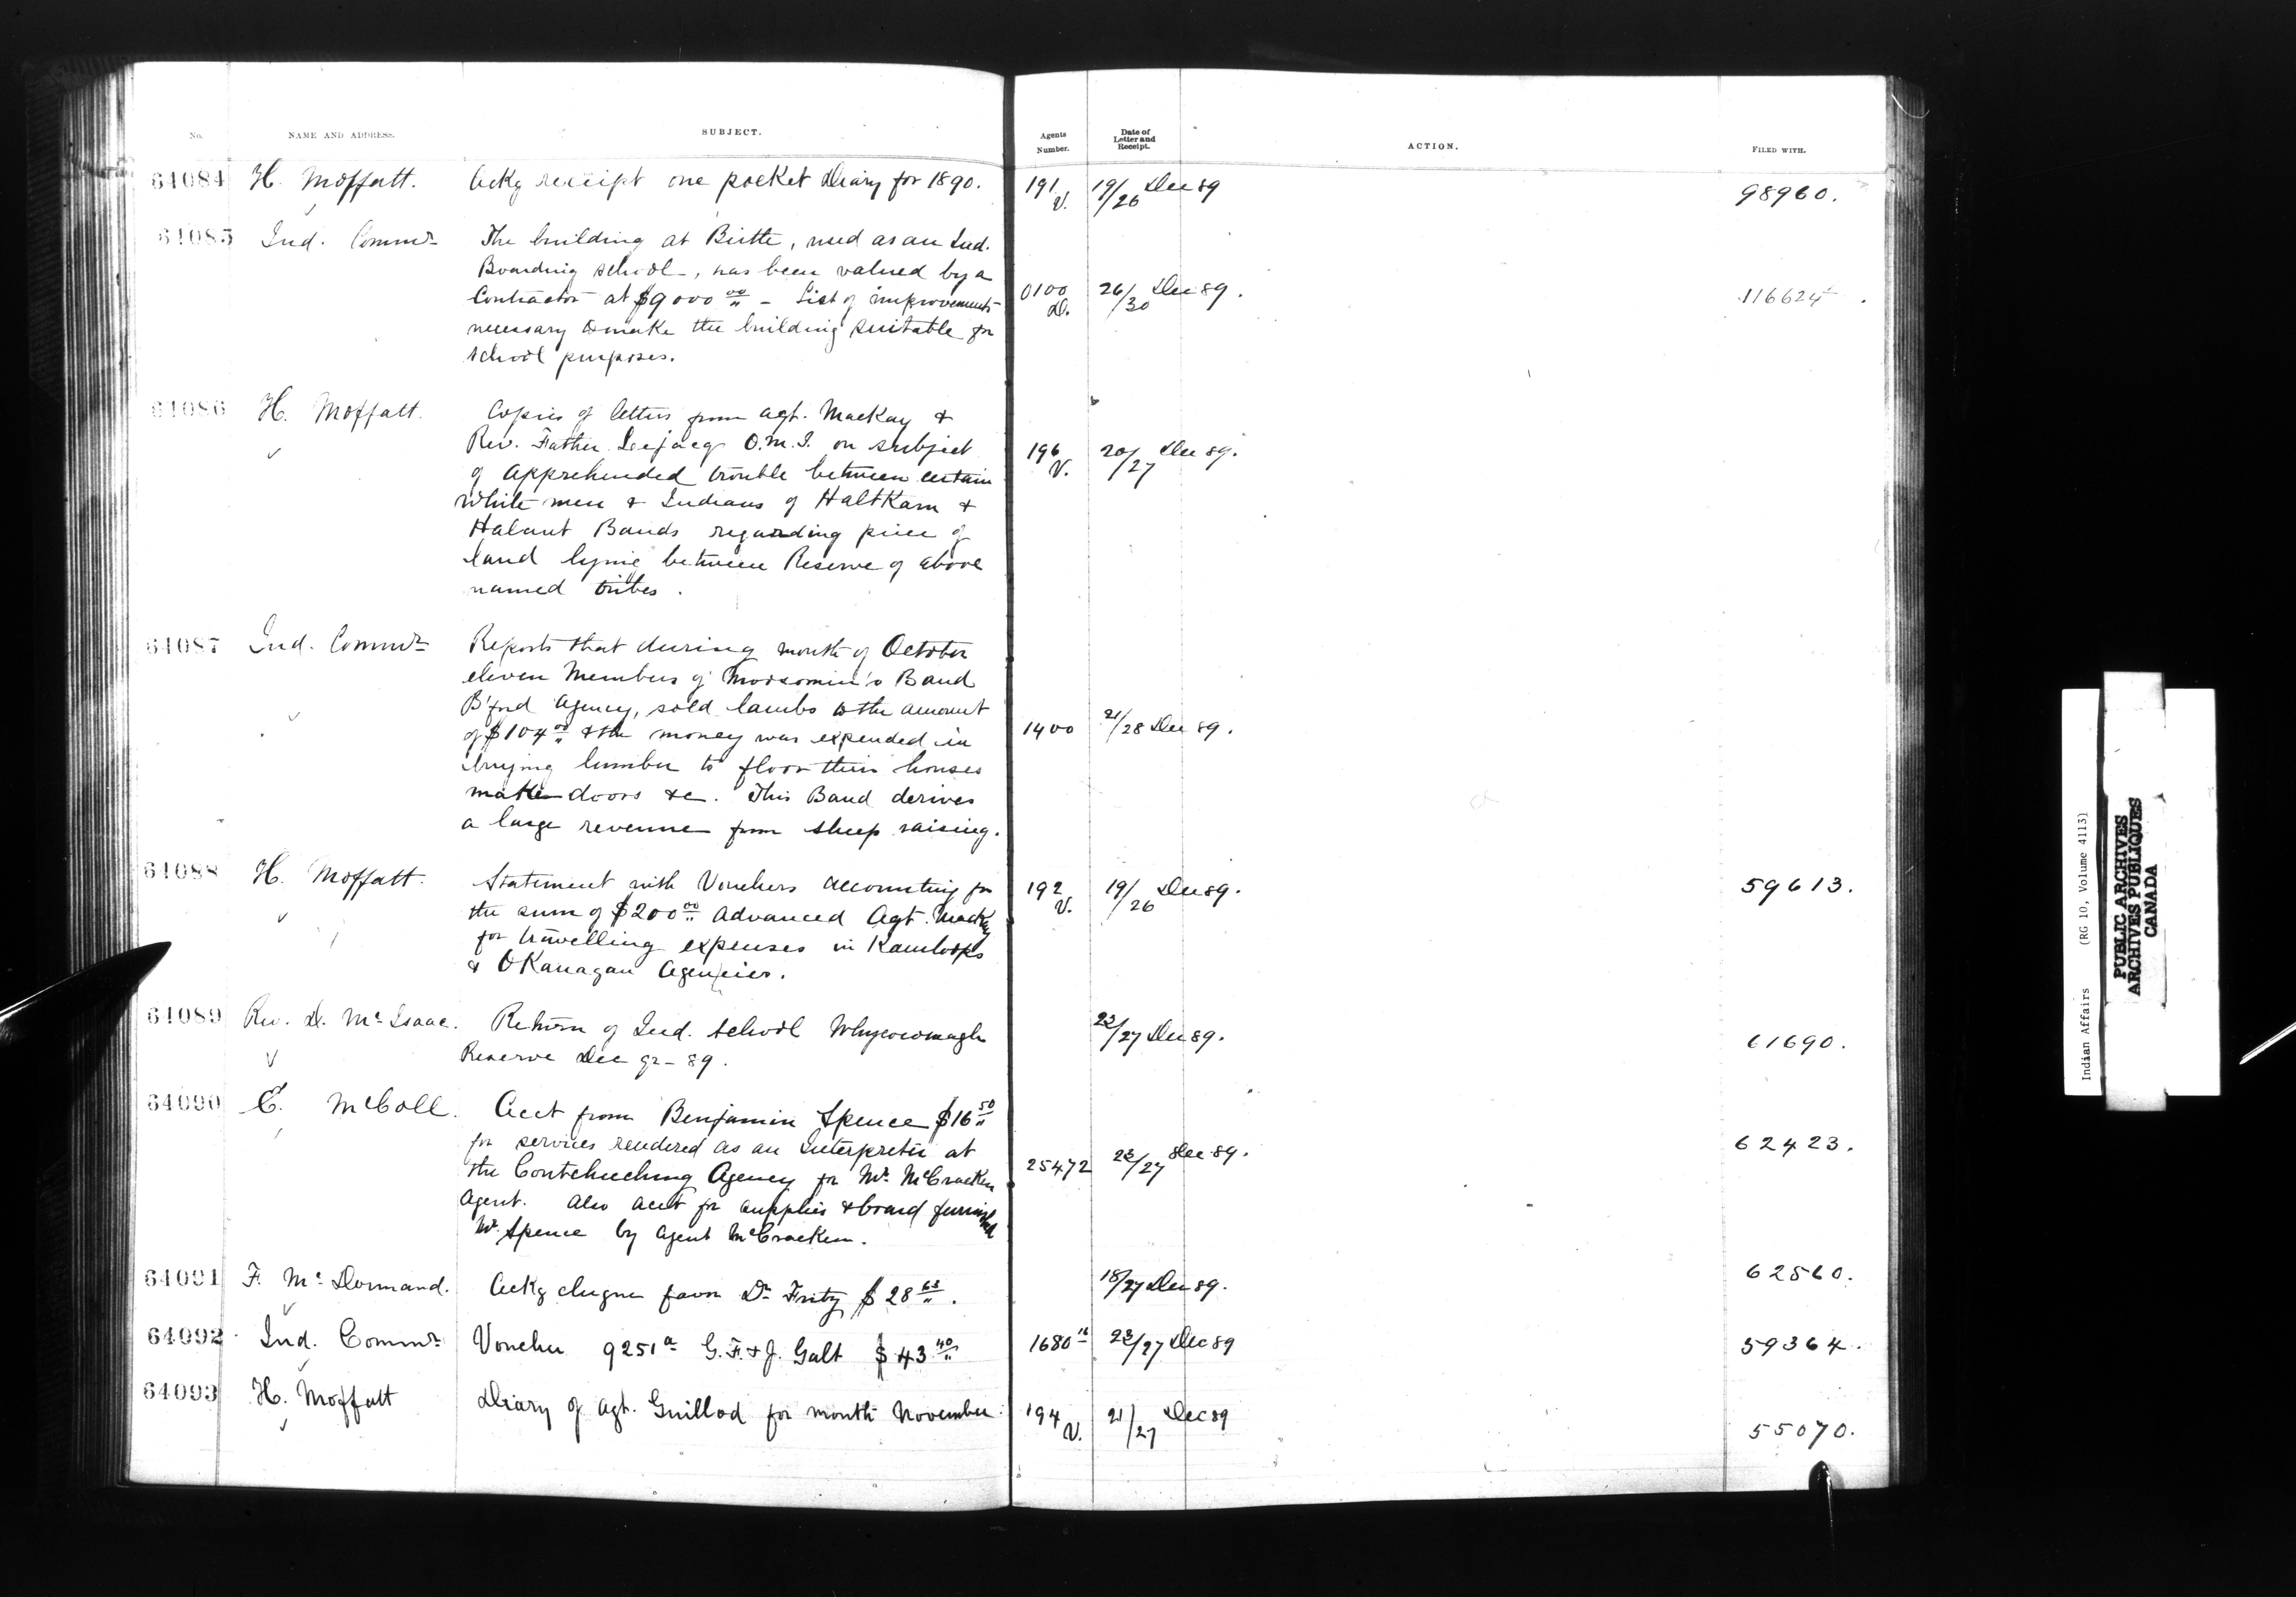 No. NAME AND ADDRESS. SUBJECT. Agents Number. Date of Letter and Receipt. ACTION. FILED WITH.
64084 H. Moffatt. Ackg receipt one pocket Diary for 1890. 191 V. 19/26 Dec 89 98960.
64085 Ind. Commr The building at Birtle, used as an Ind.
Boarding school, has been valued by a
Contractor at $9000 00 - List of improvements
0100 D. 26/30 Dec 89. 116624
necessary to make the building suitable for
school purposes.
64086 H. Moffatt. Copies of letters from Agt. MacKay &
Rev. Father Lejacq O.M.I. on subject
196 V. 20/27 Dec 89.
of apprehended trouble between certain
White men & Indians of HaltKam &
Halaut Bands regarding piece of
land lying between Reserve of above
named tribes.
64087 Ind. Commr Reports that during month of October
eleven Members of Moosomin's Band
B'ford Agency, sold lambs to the amount
of $104 00 & the money was expended in
1400 21/28 Dec 89.
buying lumber to floor their houses
make doors &c. This Band derives
a large revenue from sheep raising.
64088 H. Moffatt. Statement with Vouchers accounting for
192 V. 19/26 Dec 89. 59613.
the sum of $200 00 advanced Agt. Mackay
for travelling expenses in Kamloops
& OKanagan Agencies.
64089 Rev. D. McIsaac. Return of Ind. school Whycocomagh
Reserve Dec qr - 89.
23/27 Dec 89. 61690.
64090 E. McColl. Acct from Benjamin Spence $16 50
for services rendered as an Interpreter at
the Coutcheeching Agency for Mr. McCracken
25472 23/27 Dec 89. 62423.
Agent. Also acct for supplies & board furnished
Mr. Spence by Agent McCracken.
64091 F. McDormand. Ackg cheque favor Dr Fritz $28 63. 18/27 Dec 89. 62560.
64092 Ind. Commr Voucher 9251 a G.F. & J. Galt $43 40 1680 16 23/27 Dec 89 59364.
64093 H. Moffatt Diary of Agt. Guillod for month November. 194 V. 21/27 Dec 89 55070.
Indian Affairs (RG 10, Volume 4113)
PUBLIC ARCHIVES
ARCHIVES PUBLIQUES
CANADA